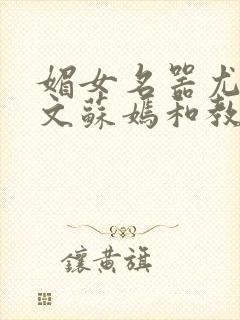 媚女名器尤
文蘇嫣和教
鑲黃旗